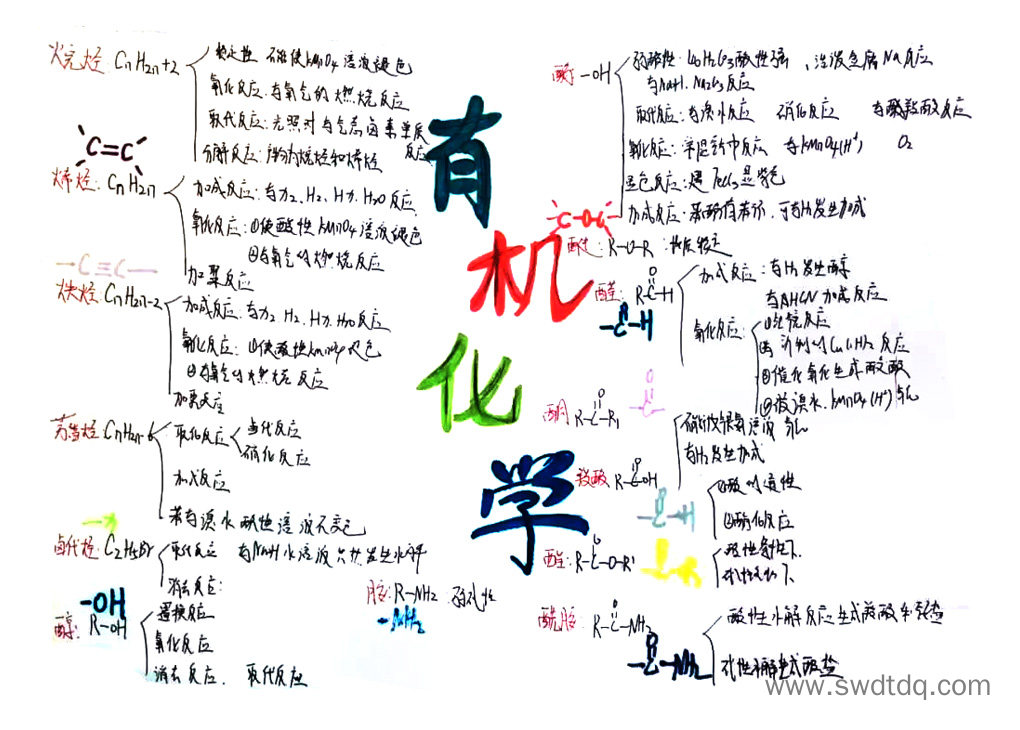 烷烃 CnH2n+2
稳定性 不能使KMnO4溶液褪色
氧化反应:与氧气的燃烧反应
取代反应:光照时与气态卤素单质反应
分解反应:
C=C
烯烃:CnH2n
加成反应:与X2、H2、HX、H2O反应
氧化反应:①使酸性KMnO4溶液褪色
②与氧气的燃烧反应
加聚反应
-C≡C-
炔烃:CnH2n-2
加成反应:与X2 H2、HX、H2O反应
氧化反应:①使酸性KMnO4褪色
②与氧气的燃烧反应
加聚反应
芳香烃 CnH2n-6
取代反应
卤代反应
硝化反应
加成反应
苯与溴水 酸性溶液不变色
-X
卤代烃:C2H5Br
取代反应 与NaOH水溶液共热发生水解
消去反应:
-OH
醇:R-OH
置换反应
氧化反应
消去反应、取代反应
胺:R-NH2 弱碱性
-NH2
有
机
化
学
酚-OH
弱酸性:比H2CO3酸性弱、活泼金属Na反应
与NaOH、Na2CO3反应
取代反应:与溴水反应 硝化反应 与酸酸反应
氧化反应:常温空气中反应 与KMnO4(H+) O2
显色反应:遇FeCl3显紫色
加成反应:与H2发生加成
C-O-C
醚:R-O-R:性质稳定
醛:R-C-H
O
-C-H
O
加成反应:与H2发生醇
与HCN加成反应
氧化反应:
①燃烧反应
②新制的Cu(OH)2反应
③催化氧化生成羧酸
④被溴水、KMnO4(H+)氧化
酮 R-C-R1
O
-C-
O
不能被银氨溶液氧化
与H2发生加成
羧酸 R-C-OH
O
-C-H
①酸的通性
②酯化反应
酯:R-C-O-R'
O
酸性条件下、
碱性条件下
酰胺:R-C-NH2
O
-C-NH2
O
酸性水解反应生成羧酸和铵盐
碱性水解生成羧酸盐
www.swdtdq.com